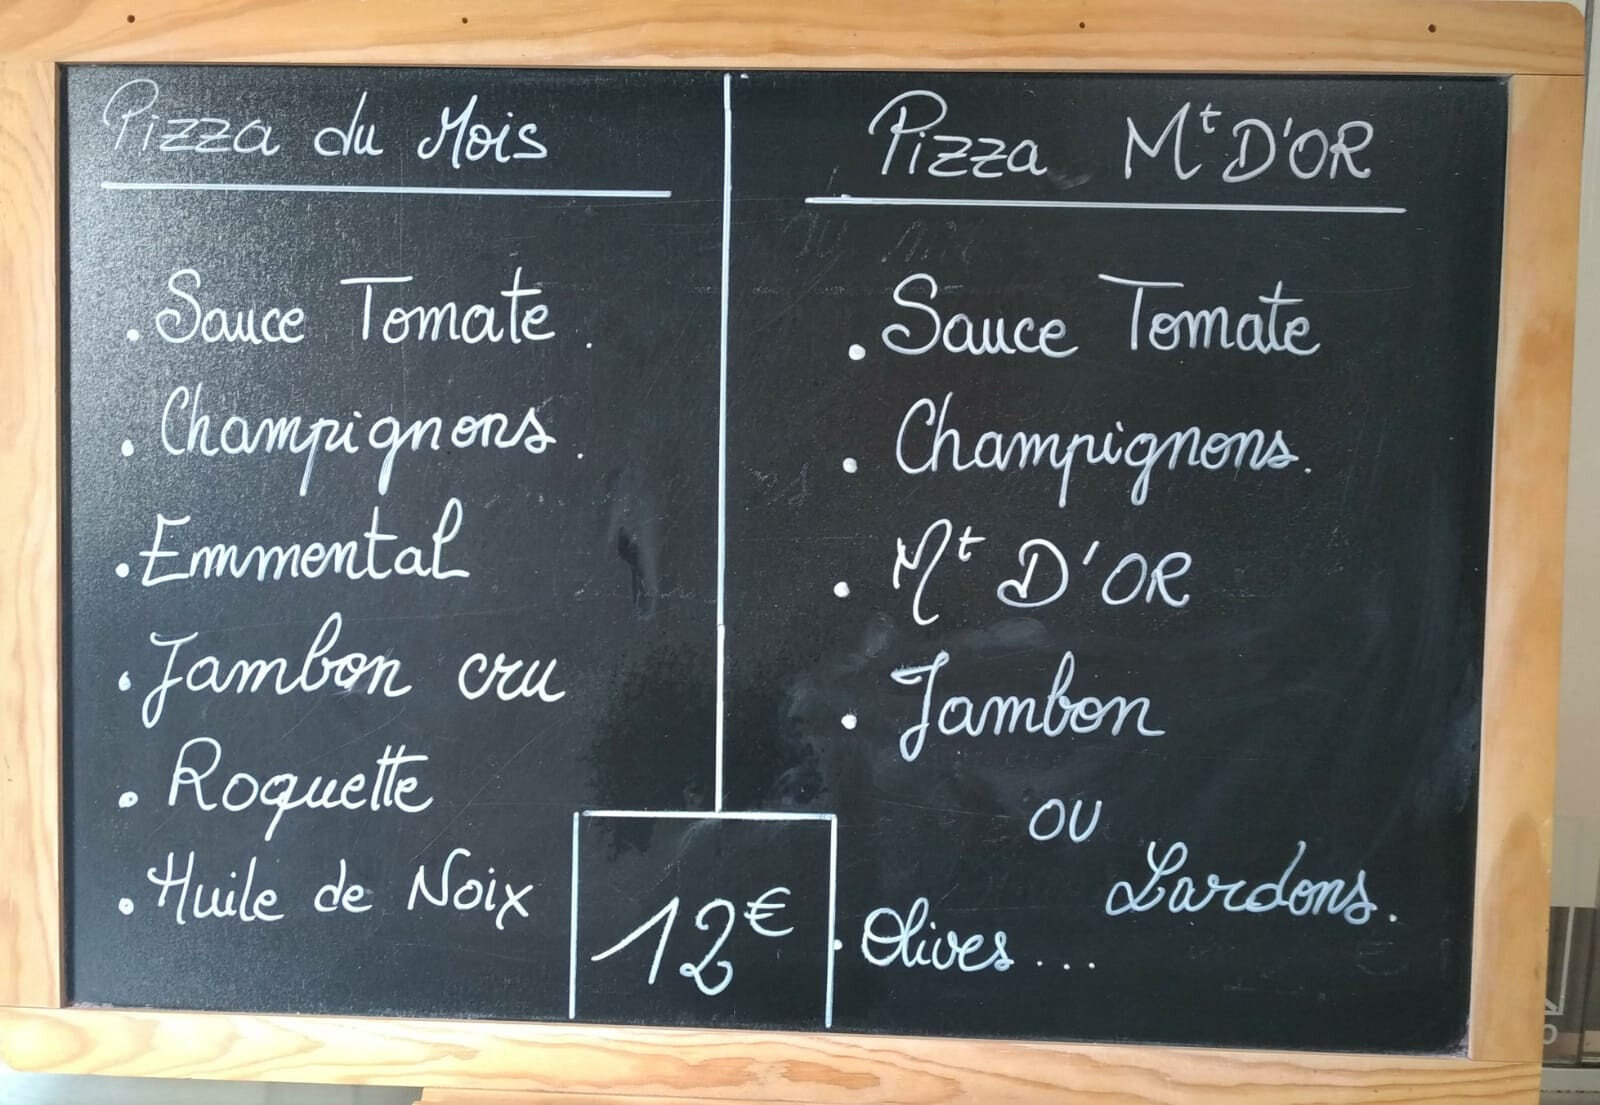 Pizza du Mois
. Sauce Tomate .
. Champignons .
. Emmental
. Jambon cru
. Roquette
. Huile de Noix
12€
Pizza Mt D'OR
. Sauce Tomate
. Champignons.
. Mt D'OR
. Jambon
ou
Lardons.
. Olives ...